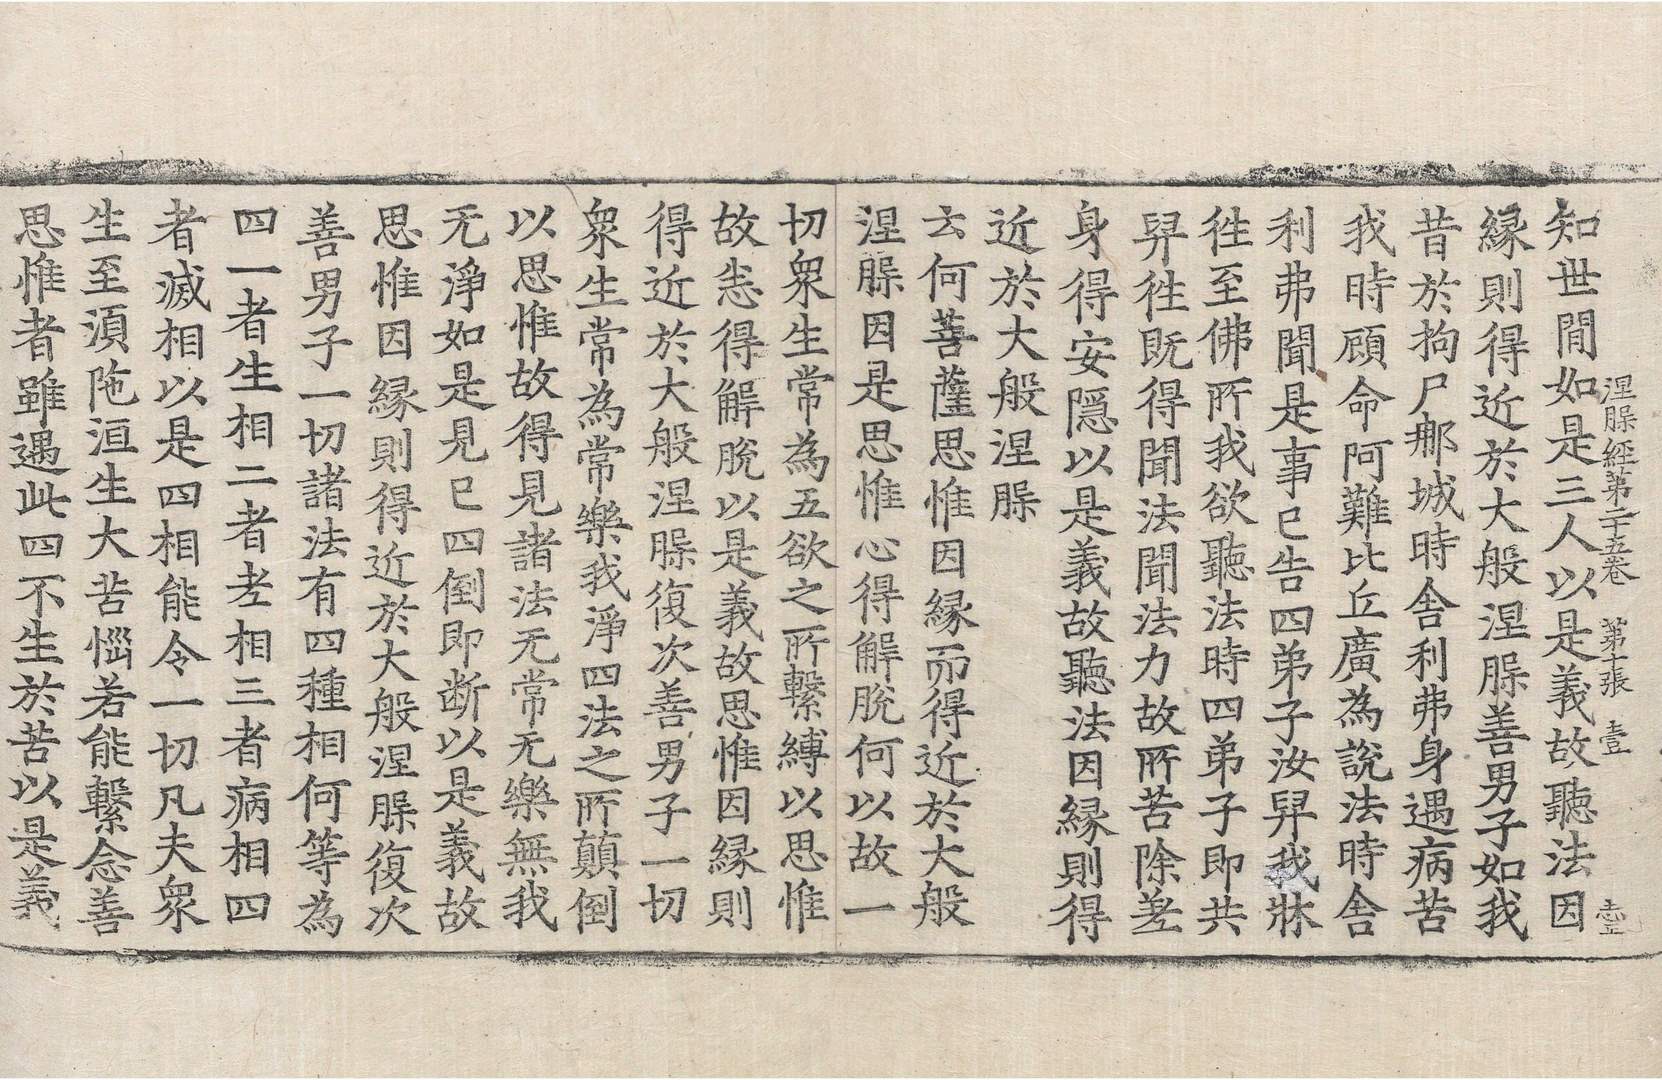 涅槃經第二十五卷　第十張　壹　壹
知世間如是三人以是義故聽法因
緣則得近於大般涅槃善男子如我
昔於拘尸那城時舍利弗身遇病苦
我時顧命阿難比丘廣為說法時舍
利弗聞是事已告四弟子汝舁我牀
徃至佛所我欲聽法時四弟子即共
舁徃既得聞法聞法力故所苦除差
身得安隱以是義故聽法因緣則得
近於大般涅槃
云何菩薩思惟因緣而得近於大般
涅槃因是思惟心得解脫何以故一
切衆生常為五欲之所繫縛以思惟
故悉得解脫以是義故思惟因緣則
得近於大般涅槃復次善男子一切
衆生常為常樂我淨四法之所顛倒
以思惟故得見諸法无常无樂無我
无淨如是見已四倒即断以是義故
思惟因緣則得近於大般涅槃復次
善男子一切諸法有四種相何等為
四一者生相二者老相三者病相四
者滅相以是四相能令一切凡夫衆
生至湏陁洹生大苦惱若能繫念善
思惟者雖遇此四不生於苦以是義